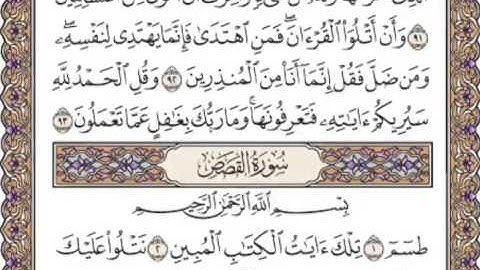 وَأَنْ أَتْلُوَا۟ ٱلْقُرْءَانَ ۖ فَمَنِ ٱهْتَدَىٰ فَإِنَّمَا يَهْتَدِى لِنَفْسِهِۦ ۖ
وَمَن ضَلَّ فَقُلْ إِنَّمَآ أَنَا۠ مِنَ ٱلْمُنذِرِينَ ٩٢ وَقُلِ ٱلْحَمْدُ لِلَّهِ
سَيُرِيكُمْ ءَايَٰتِهِۦ فَتَعْرِفُونَهَا ۚ وَمَا رَبُّكَ بِغَٰفِلٍ عَمَّا تَعْمَلُونَ ٩٣
سُورَةُ القَصَصِ
بِسْمِ ٱللَّهِ ٱلرَّحْمَٰنِ ٱلرَّحِيمِ
طسٓمٓ ١ تِلْكَ ءَايَٰتُ ٱلْكِتَٰبِ ٱلْمُبِينِ ٢ نَتْلُوا۟ عَلَيْكَ